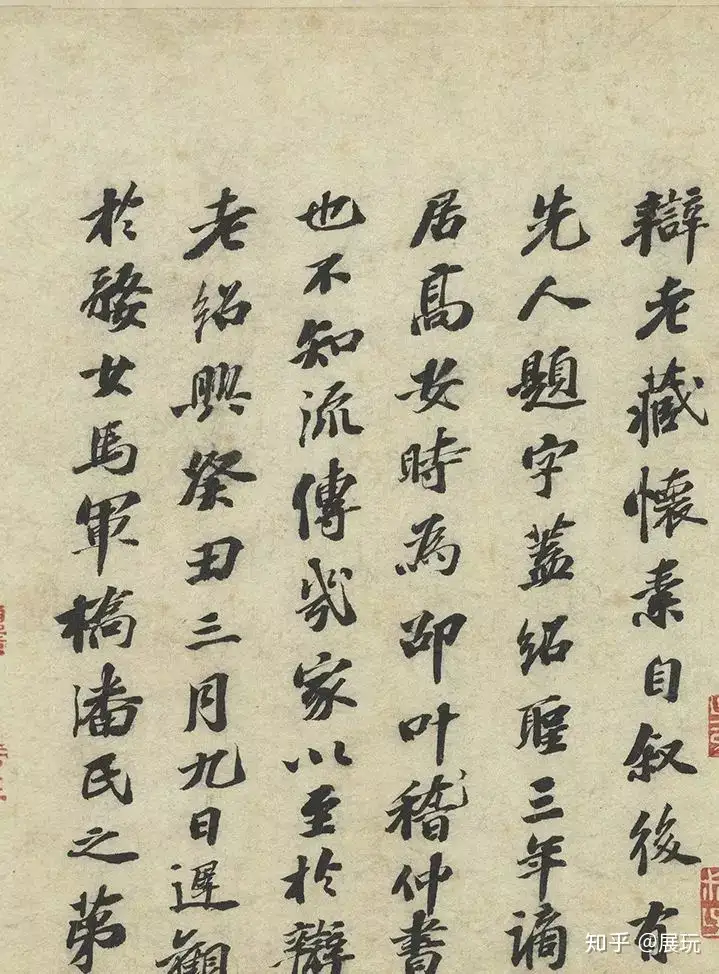 辯老藏懷素自叙後有
先人題字蓋紹聖三年謫
居高安時為邵叶稽仲書
也不知流傳幾家以至於辯
老紹興癸丑三月九日遲觀
於婺女馬軍橋潘氏之第
知乎 @展玩